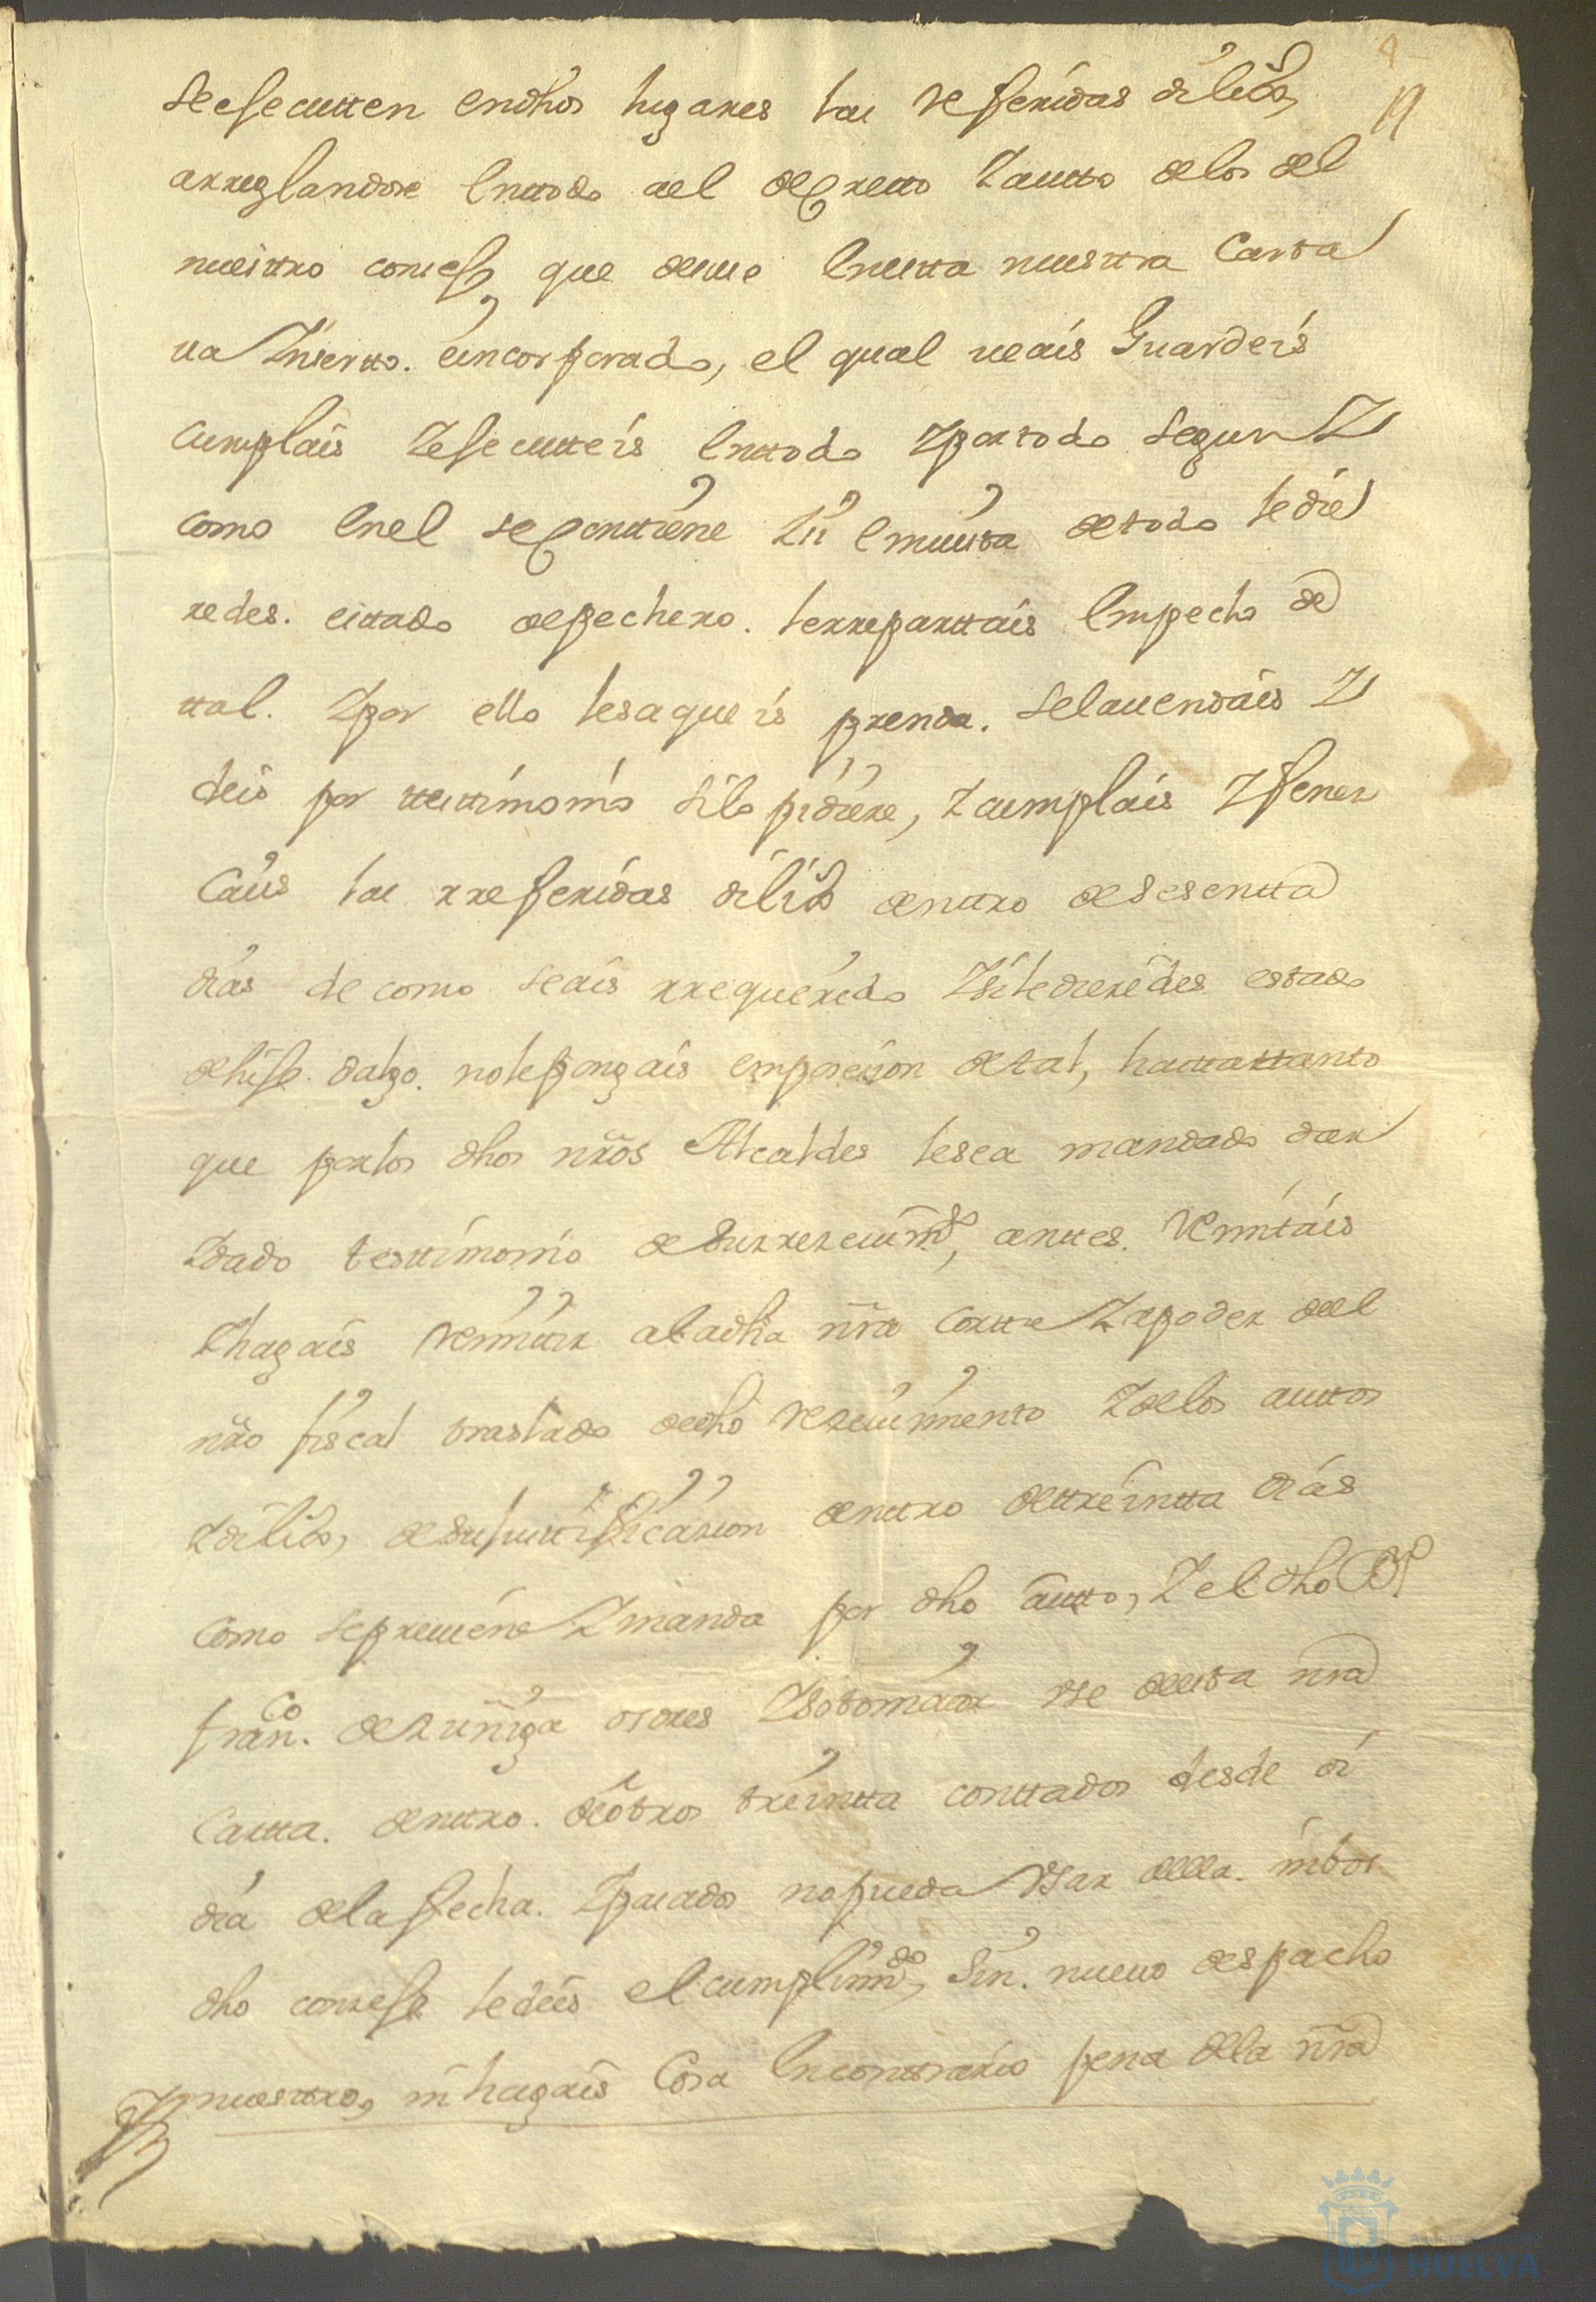 8
19
se efecutten endhos lugares las referidas dilixs,
arreglandose enttodo ael decretto Zautto delos del
nuesttro consejo, que deuuo enestta nuesttra Cartta
ua Inserto. eincorporado, el qual ueais Guardeis
Cumplais Zefecutteis enttodo Zportodo segun Z
como enel se conttiene Zsi enuista detodo le die
redes. esttado depechero. lerreparttais empecho de
ttal. Zpor ello lesaqueis prenda. selauendais Z
deis por testtimonio silo pidiere, Zcumplais Zfenez
Cais las rreferidas dilixs denttro desesentta
dias de como seais rrequerido Zsiledieredes estado
dehijo. dalgo. nolepongais emposesion detal, hasttattanto
que porlos dhos nros Alcaldes lesea mandado dar
Zdado testtimonio desurreceuimto, anttes. Remitais
Zhagais Remitir aladha nra Cortte Zapoder del
nro fiscal traslado dedho receuimiento Zdelos auttos
Zdilixs, desujusttificazion denttro dettreintta dias
Como sepreuiene Zmanda por dho autto, Z el dho Dn
franco. dezuñiga osores Zsotomaior use destta nra
Cartta. denttro. deotros treintta conttados desde el
dia delafecha. Zpasados nopueda Usar della. ni bos
dho consejo ledeis el cumplimto, Sin. nueuo despacho
nuesttro, ni hagais Cosa enconttrario pena dela nra
HUELVA